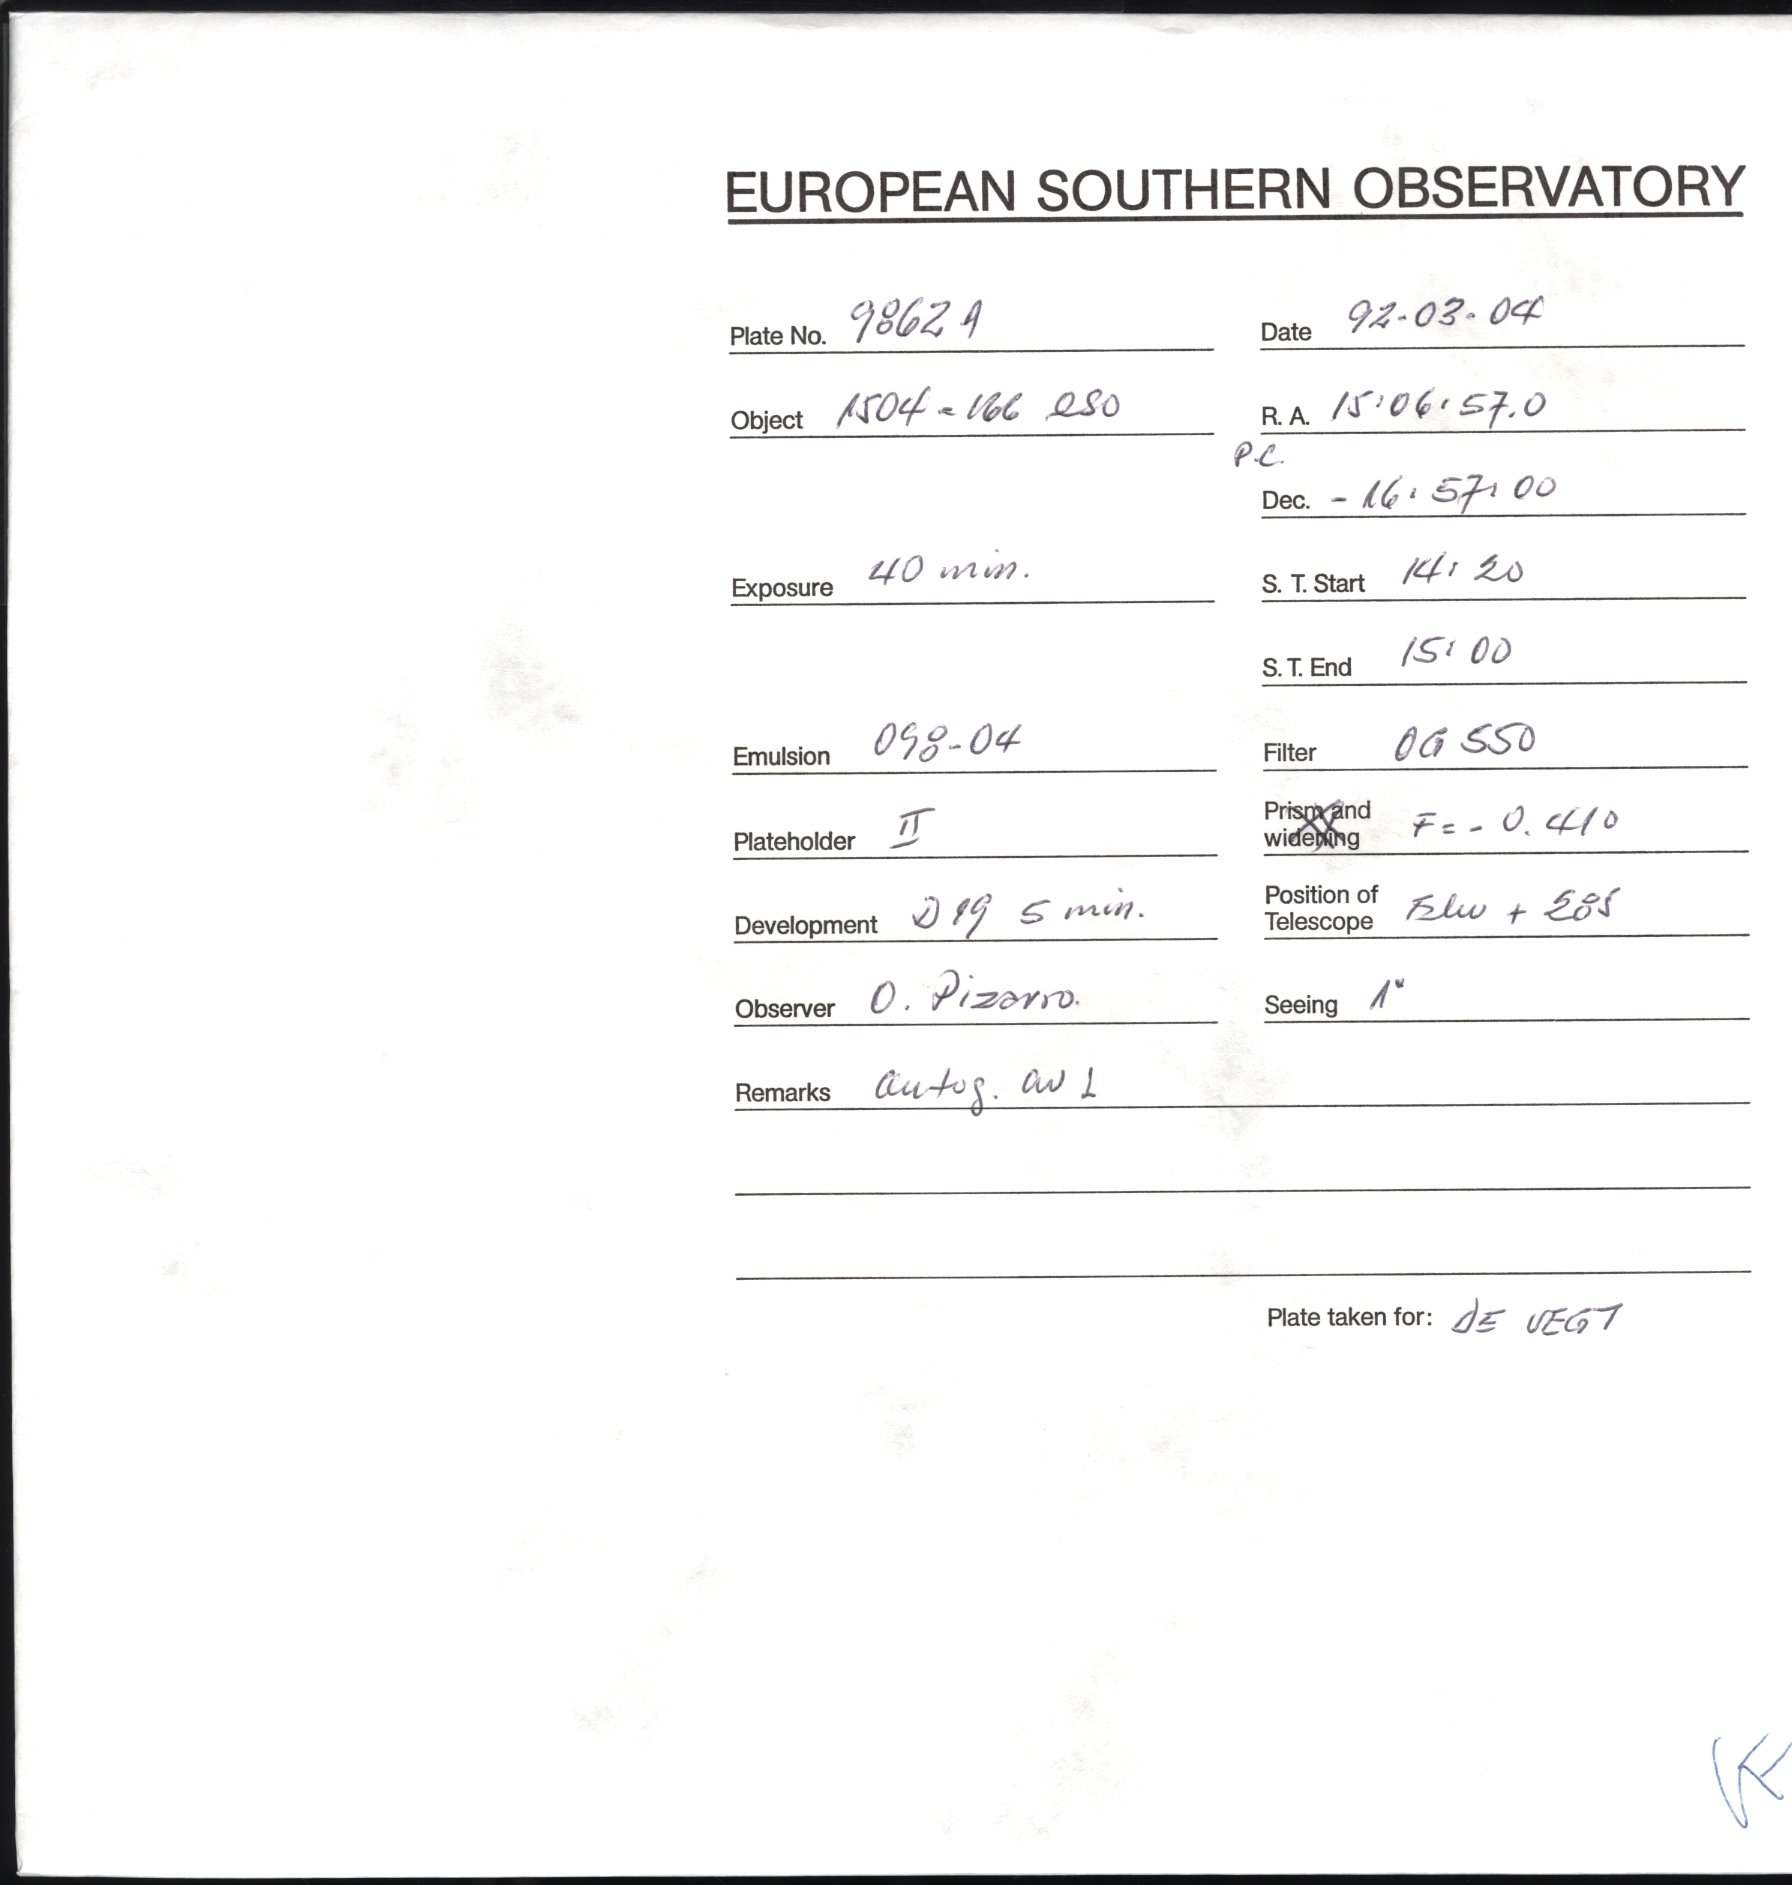 EUROPEAN SOUTHERN OBSERVATORY
Plate No. 9862 A
Date 92-03-04
Object 1504-166 ESO
R. A. 15:06:57.0
P.C.
Dec. - 16:57:00
Exposure 40 min.
S. T. Start 14:20
S. T. End 15:00
Emulsion 098-04
Filter OG 550
Plateholder II
Prism and widening F = - 0.410
Development D19 5 min.
Position of Telescope
Observer O. Pizarro.
Seeing 1"
Remarks autog.
Plate taken for: DE VEGT